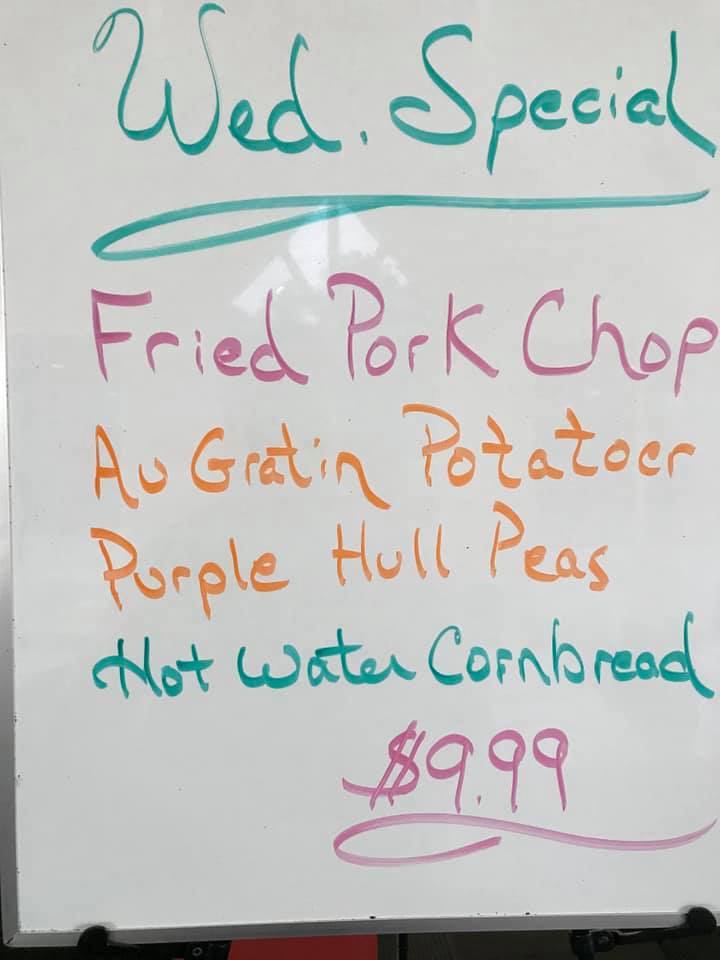 Wed. Special
Fried Pork Chop
Au Gratin Potatoes
Purple Hull Peas
Hot Water Cornbread
$9.99